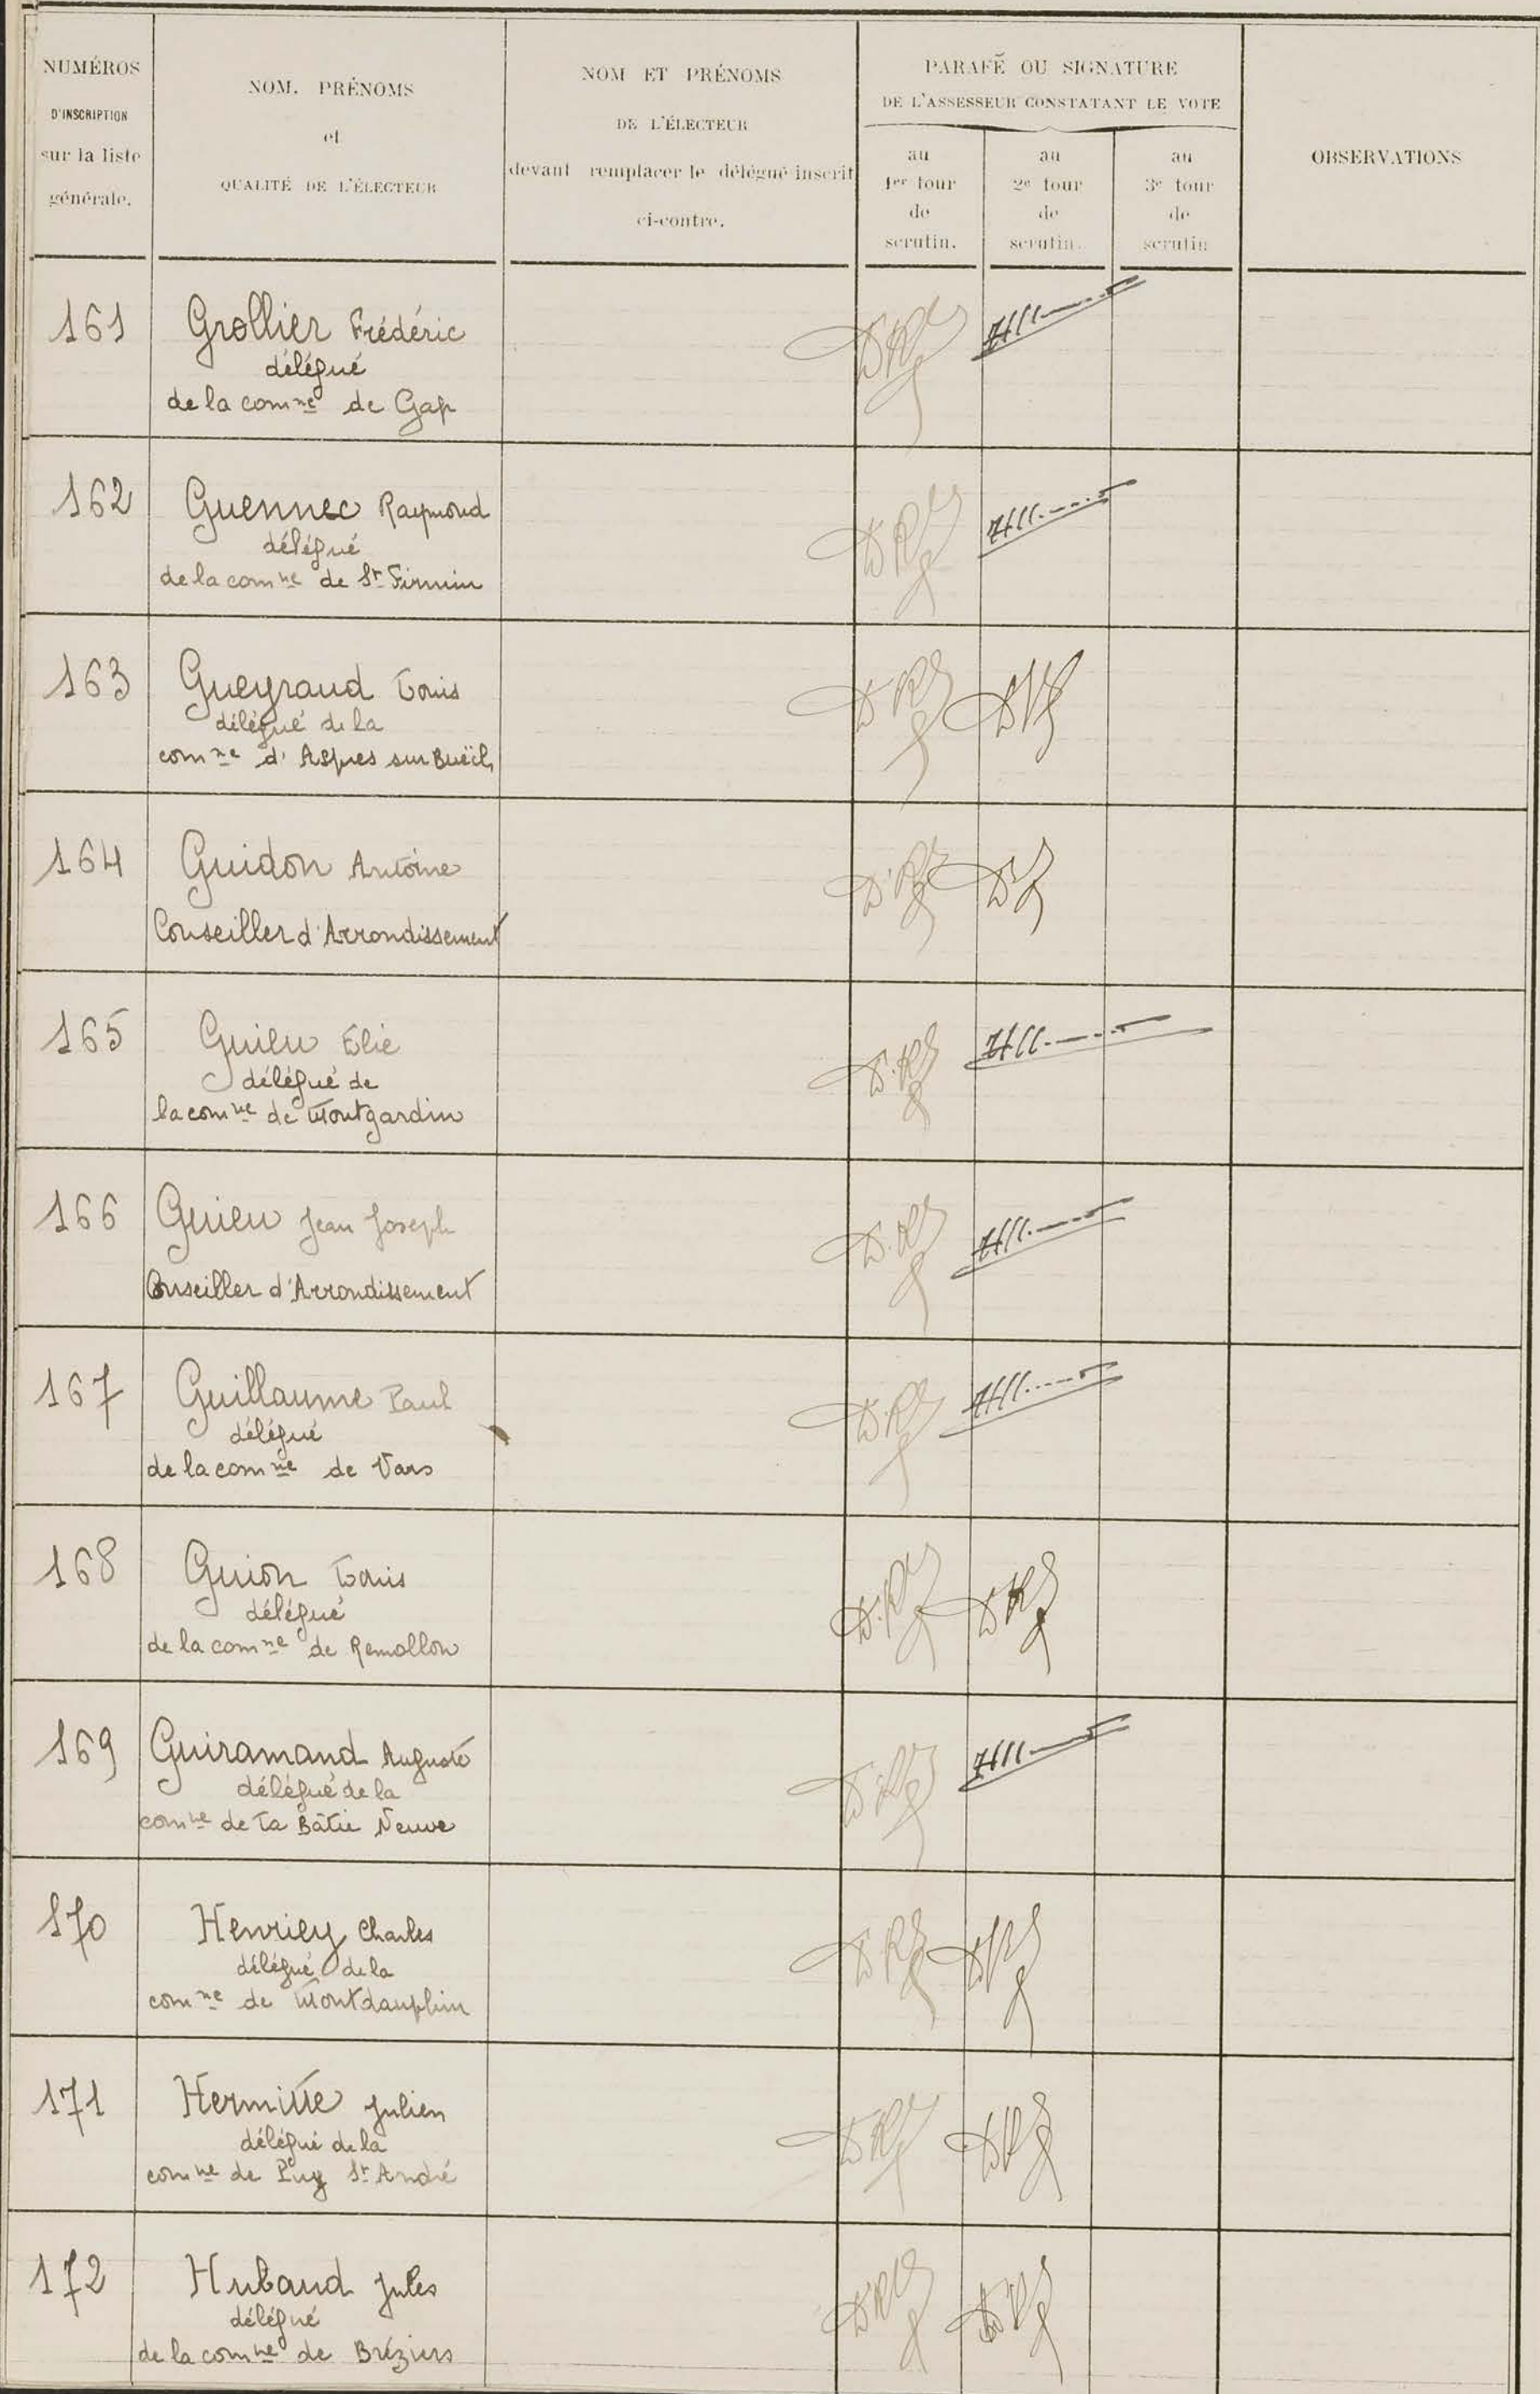 NUMÉROS
D'INSCRIPTION
sur la liste
générale.
NOM. PRÉNOMS
et
QUALITÉ DE L'ÉLECTEUR
NOM ET PRÉNOMS
DE L'ÉLECTEUR
devant remplacer le délégué inscrit
ci-contre.
PARAFE OU SIGNATURE
DE L'ASSESSEUR CONSTATANT LE VOTE
au
1er tour
de
scrutin.
au
2e tour
de
scrutin.
au
3e tour
de
scrutin
OBSERVATIONS
161 Grollier Frédéric
délégué
de la comne de Gap
162 Guennec Raymond
délégué
de la comne de St Firmin
163 Gueyraud Louis
délégué de la
comne d'Aspres sur Buëch
164 Guidon Antoine
Conseiller d'Arrondissement
165 Guieu Elie
délégué de
la comne de Montgardin
166 Guieu Jean Joseph
Conseiller d'Arrondissement
167 Guillaume Paul
délégué
de la comne de Vars
168 Guion Louis
délégué
de la comne de Remollon
169 Guiramand Auguste
délégué de la
comne de La Bâtie Neuve
170 Henriey Charles
délégué de la
comne de Montdauphin
171 Hermitte Julien
délégué de la
comne de Puy St André
172 Hubaud Jules
délégué
de la comne de Bréziers